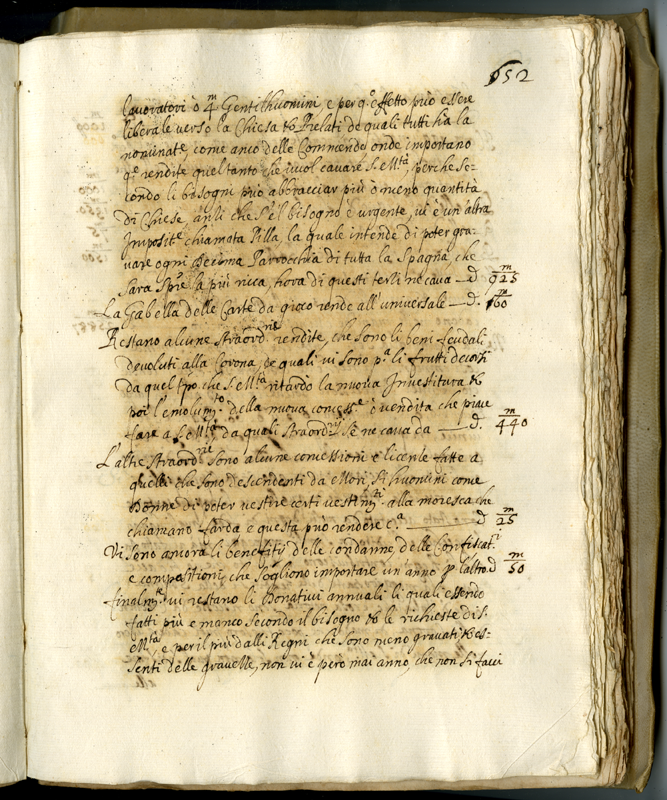 652
lavoratori ò 4 m Gentilhuomini, e per q.o effetto può essere
liberale verso la Chiesa & Prelati de quali tutti hà la
nominat.e, come anco delle Commende onde importano
q.e rendite quel tanto che vuol cavare S. M.tà, perche se-
condo li bisogni può abbracciar più ò meno quantità
di Chiese, anzi che s'è l bisogno è urgente, vi è un'altra
Imposit.e chiamata Pilla, la quale intende di poter gra-
vare ogni Decima Parrocchia di tutta la Spagna, che
sara la più ricca, hora di questi terzi ne cava — d. 925 m
La Gabella delle Carte da gioco rende all'universale — d. 60 m
Restano alcune straord.rie rendite, che sono li beni feudali
devoluti alla Corona, de quali vi sono p.a li frutti decorsi
da quel tpo. che S. M.tà ritardò la nuova Investitura &
poi l'emolum.to della nuova concess.e ò vendita che piace
fare a S. M.tà da quali straord.rie se ne cava da — d. 440 m
L'altre straord.rie sono alcune concessioni e licenze fatte a
quelli che sono descendenti da Mori, sì huomini come
Donne di poter vestire certi vestim.ti alla moresca che
chiamano farda e questa può rendere c.a — d 25 m
Vi sono ancora li benefitij delle condanne, delle Confiscat.i
e compositioni, che sogliono importare un anno p l'altro d 50 m
finalm.te vi restano li Donativi annuali li quali essendo
fatti più e manco secondo il bisogno & le richieste di S.
M.tà, e per il più dalli Regni che sono meno gravati & es-
senti delle gravezze, non vi è però mai anno, che non si facci